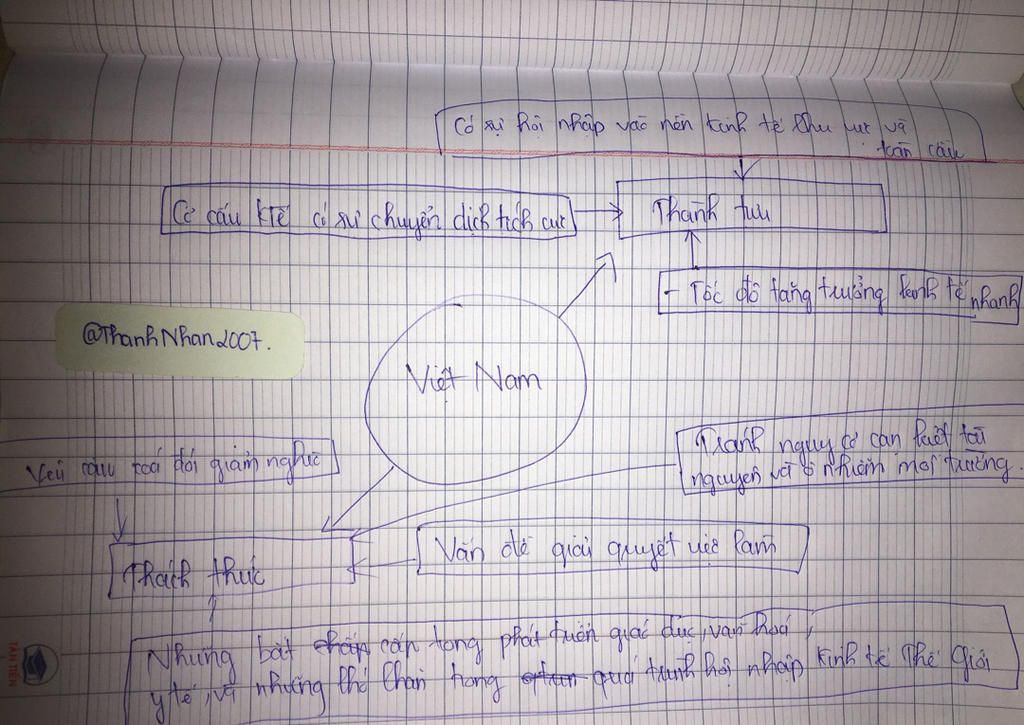 Có sự hội nhập vào nền kinh tế khu vực và
toàn cầu
Cơ cấu ktế có sự chuyển dịch tích cực
Thành tựu
- Tốc độ tăng trưởng kinh tế nhanh
@ThanhNhan2007.
Việt Nam
Tránh nguy cơ cạn kiệt tài
nguyên và ô nhiễm môi trường.
Yêu cầu xoá đói giảm nghèo
Vấn đề giải quyết việc làm
Thách thức
Những bất cập trong phát triển giáo dục, văn hoá,
y tế, và những khó khăn trong quá trình hội nhập kinh tế thế giới
TÂN TIẾN